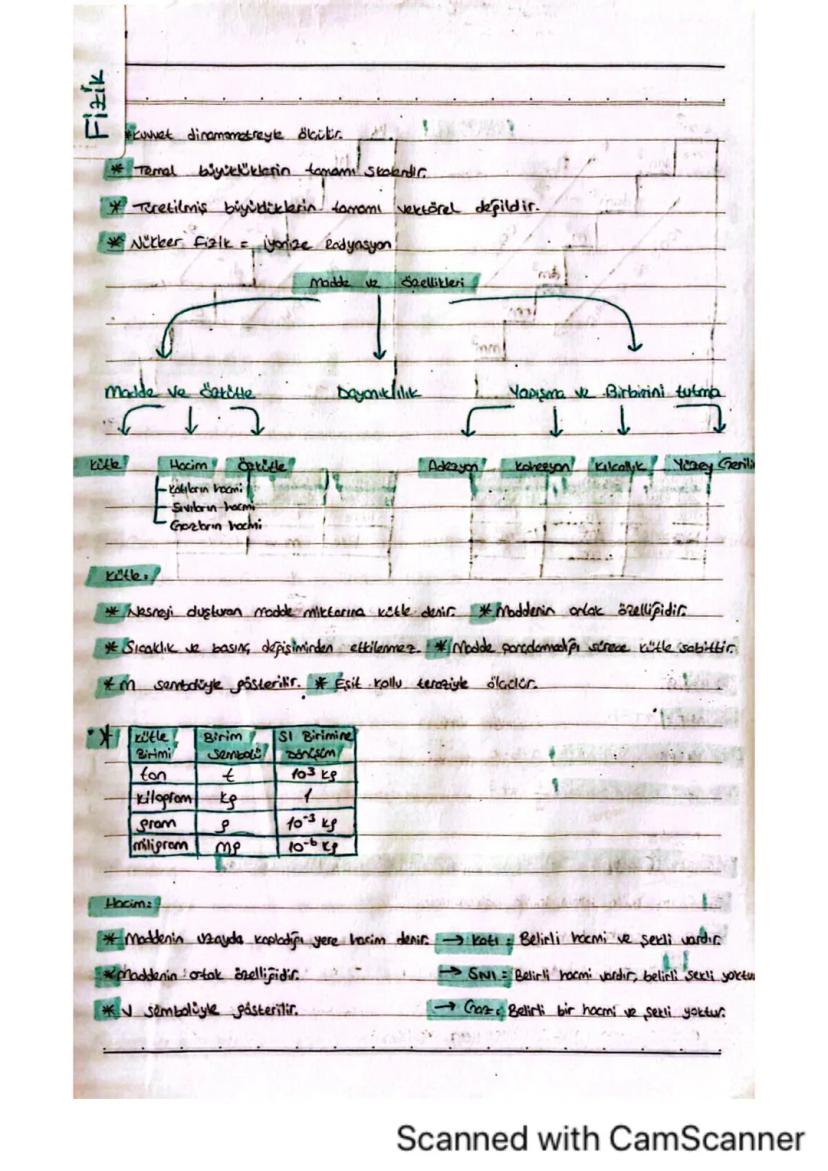 Fizik
*Kuvvet dinamometreyle ölçülür.
* Temel büyüklüklerin tamamı skalerdir.
* Türetilmiş büyüklüklerin tamamı vektörel değildir.
* Nükleer Fizik = iyonize Radyasyon
Madde ve Özellikleri
Madde ve Özkütle Dayanıklılık Yapışma ve Birbirini tutma
Kütle Hacim Özkütle Adezyon Kohezyon Kılcallık Yüzey Gerili
Katıların hacmi
Sıvıların hacmi
Gazların hacmi
Kütle:
* Nesneyi oluşturan madde miktarına kütle denir. * Maddenin ortak özelliğidir.
* Sıcaklık ve basınç değişiminden etkilenmez. * Madde parçalamadığı sürece kütle sabittir.
* m sembolüyle gösterilir. * Eşit kollu teraziyle ölçülür.
* Kütle Birimi Birim Sembolü SI Birimine Dönüşüm
ton t 10³ kg
kilogram kg 1
gram g 10⁻³ kg
miligram mg 10⁻⁶ kg
Hacim:
* Maddenin uzayda kapladığı yere hacim denir. → Katı: Belirli hacmi ve şekli vardır.
* Maddenin ortak özelliğidir. → Sıvı = Belirli hacmi vardır, belirli şekli yoktur
* V sembolüyle gösterilir. → Gaz: Belirli bir hacmi ve şekli yoktur.
Scanned with CamScanner